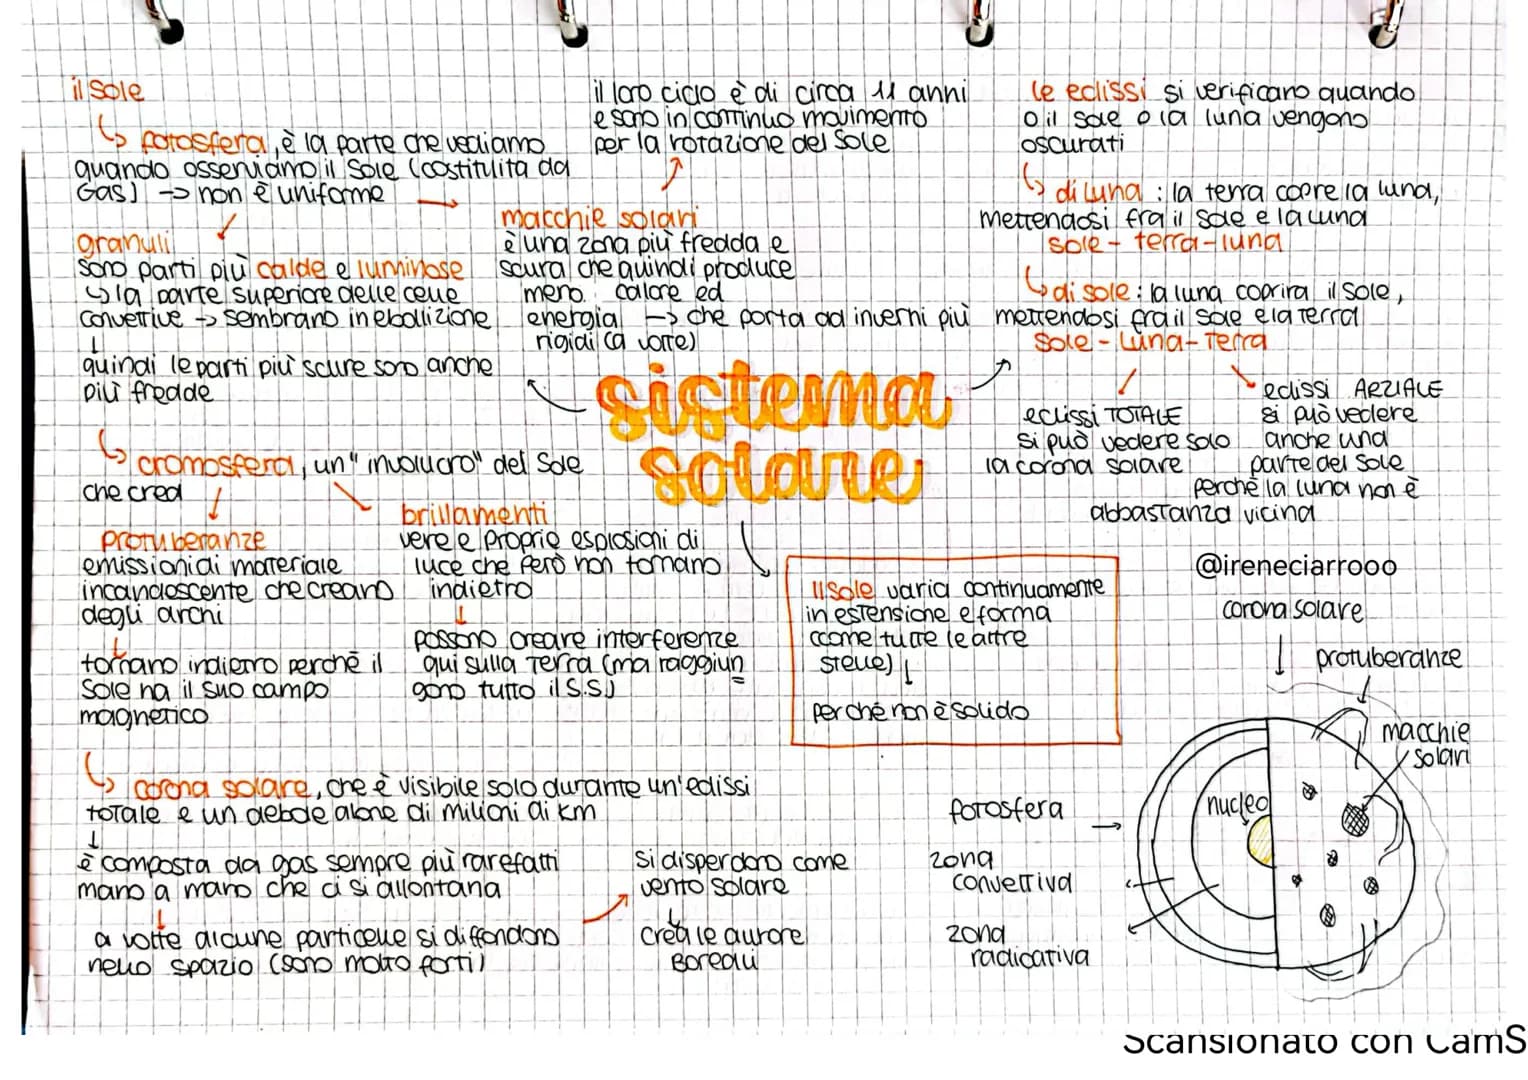 il Sole
↳ fotosfera, è la parte che vediamo
quando osserviamo il Sole (costituita da
Gas) → non è uniforme
granuli
sono parti più calde e luminose
↳ la parte superiore delle celle
convettive → sembrano in ebollizione
↓
quindi le parti più scure sono anche
più fredde
il loro ciclo è di circa 11 anni
e sono in continuo movimento
per la rotazione del Sole
macchie solari
è una zona più fredda e
scura che quindi produce
meno calore ed
energia → che porta ad inverni più
rigidi (a volte)
sistema
solare
le eclissi si verificano quando
o il sole o la luna vengono
oscurati
↳ di luna : la terra copre la luna,
mettendosi fra il sole e la luna
sole - terra - luna
↳ di sole : la luna coprirà il sole,
mettendosi fra il sole e la terra
Sole - Luna - Terra
eclissi TOTALE
si può vedere solo
la corona solare
eclissi ARZIALE
si può vedere
anche una
parte del sole
perchè la luna non è
abbastanza vicina
↳ cromosfera, un "involucro" del Sole
che crea
protuberanze
emissioni di materiale
incandescente che creano
degli archi
↓
tornano indietro perchè il
Sole ha il suo campo
magnetico
brillamenti
vere e proprie esplosioni di
luce che però non tornano
indietro
↓
possono creare interferenze
qui sulla Terra (ma raggiun
gono tutto il S.S)
Il Sole varia continuamente
in estensione e forma
(come tutte le altre
stelle) ↓
perchè non è solido
↳ corona solare, che è visibile solo durante un'eclissi
totale e un debole alone di milioni di km
↓
è composta da gas sempre più rarefatti
mano a mano che ci si allontana
↓
a volte alcune particelle si diffondono
nello spazio (sono molto forti)
Si disperdono come
vento solare
↓
crea le aurore
Boreali
@ireneciarrooo
corona solare
protuberanze
macchie
solari
nucleo
fotosfera
zona
convettiva
zona
radioativa
Scansionato con CamS